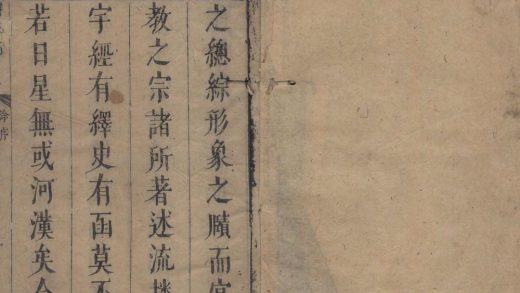 之總綜形象之賾而宮
教之宗諸所著述流播
宇經有繹史有函莫不
若日星無或河漢矣今